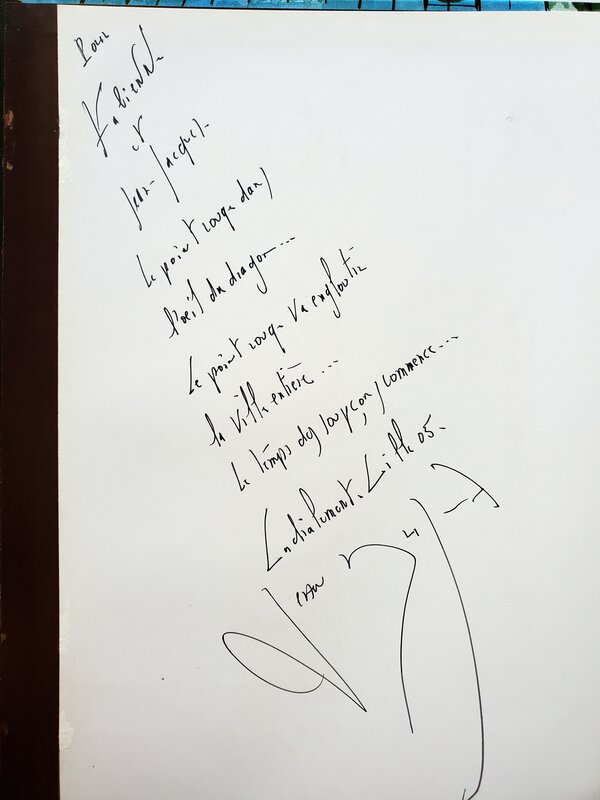 Pour
Fabienne
et
Jean-Jacques.
Le point rouge dans
l'œil du dragon...
Le point rouge va engloutir
la ville entière...
Le temps des soupçons commence...
Cordialement. Lille 05.
Jean